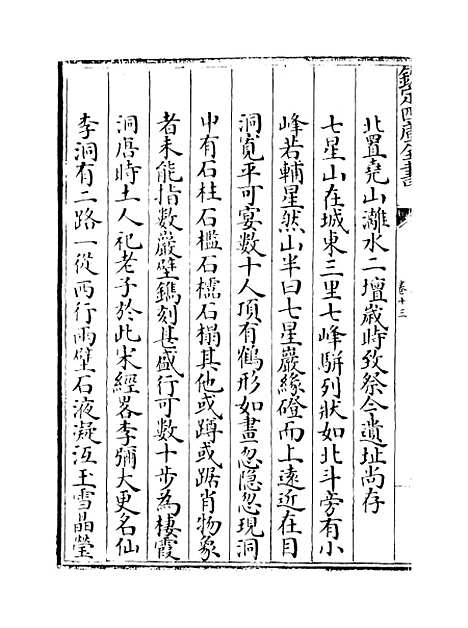 欽定四庫全書
卷十三
北置堯山灕水二壇歲時致祭今遺址尚存
七星山在城東三里七峰駢列狀如北斗旁有小
峰若輔星然山半曰七星巖緣磴而上遠近在目
洞寬平可宴數十人頂有鶴形如畫忽隱忽現洞
中有石柱石檻石橋石榻其他或蹲或踞肖物象
者未能指數巖壁鐫刻甚盛行可數十步為棲霞
洞唐時土人祀老子於此宋經畧李彌大更名仙
李洞有二路一從西行兩壁石液凝沍玉雪晶瑩